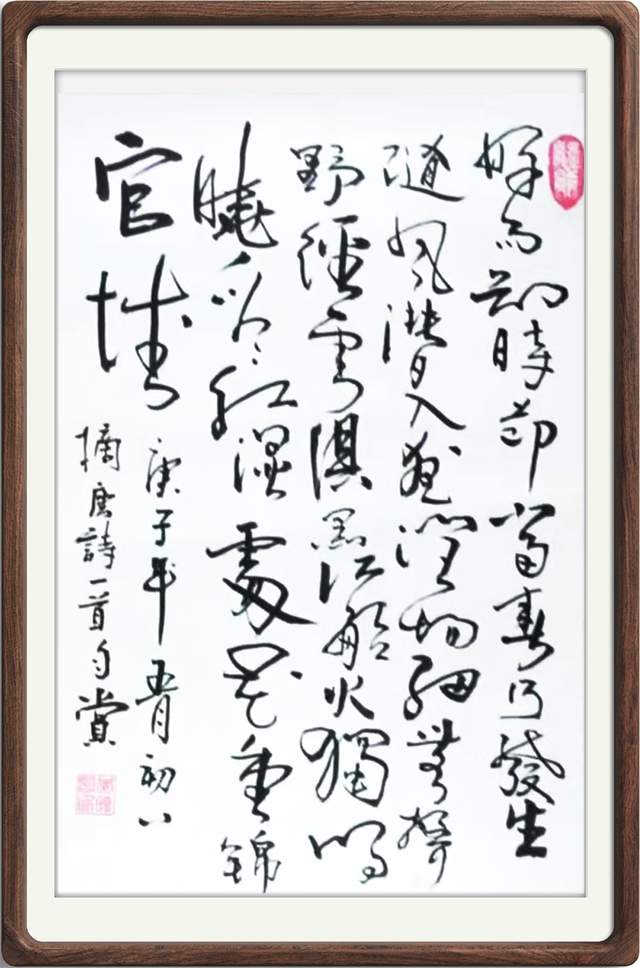 好雨知時節當春乃發生
隨風潛入夜潤物細無聲
野徑雲俱黑江船火獨明
曉看紅濕處花重錦
官城
庚子年五月初八
摘唐詩一首自賞